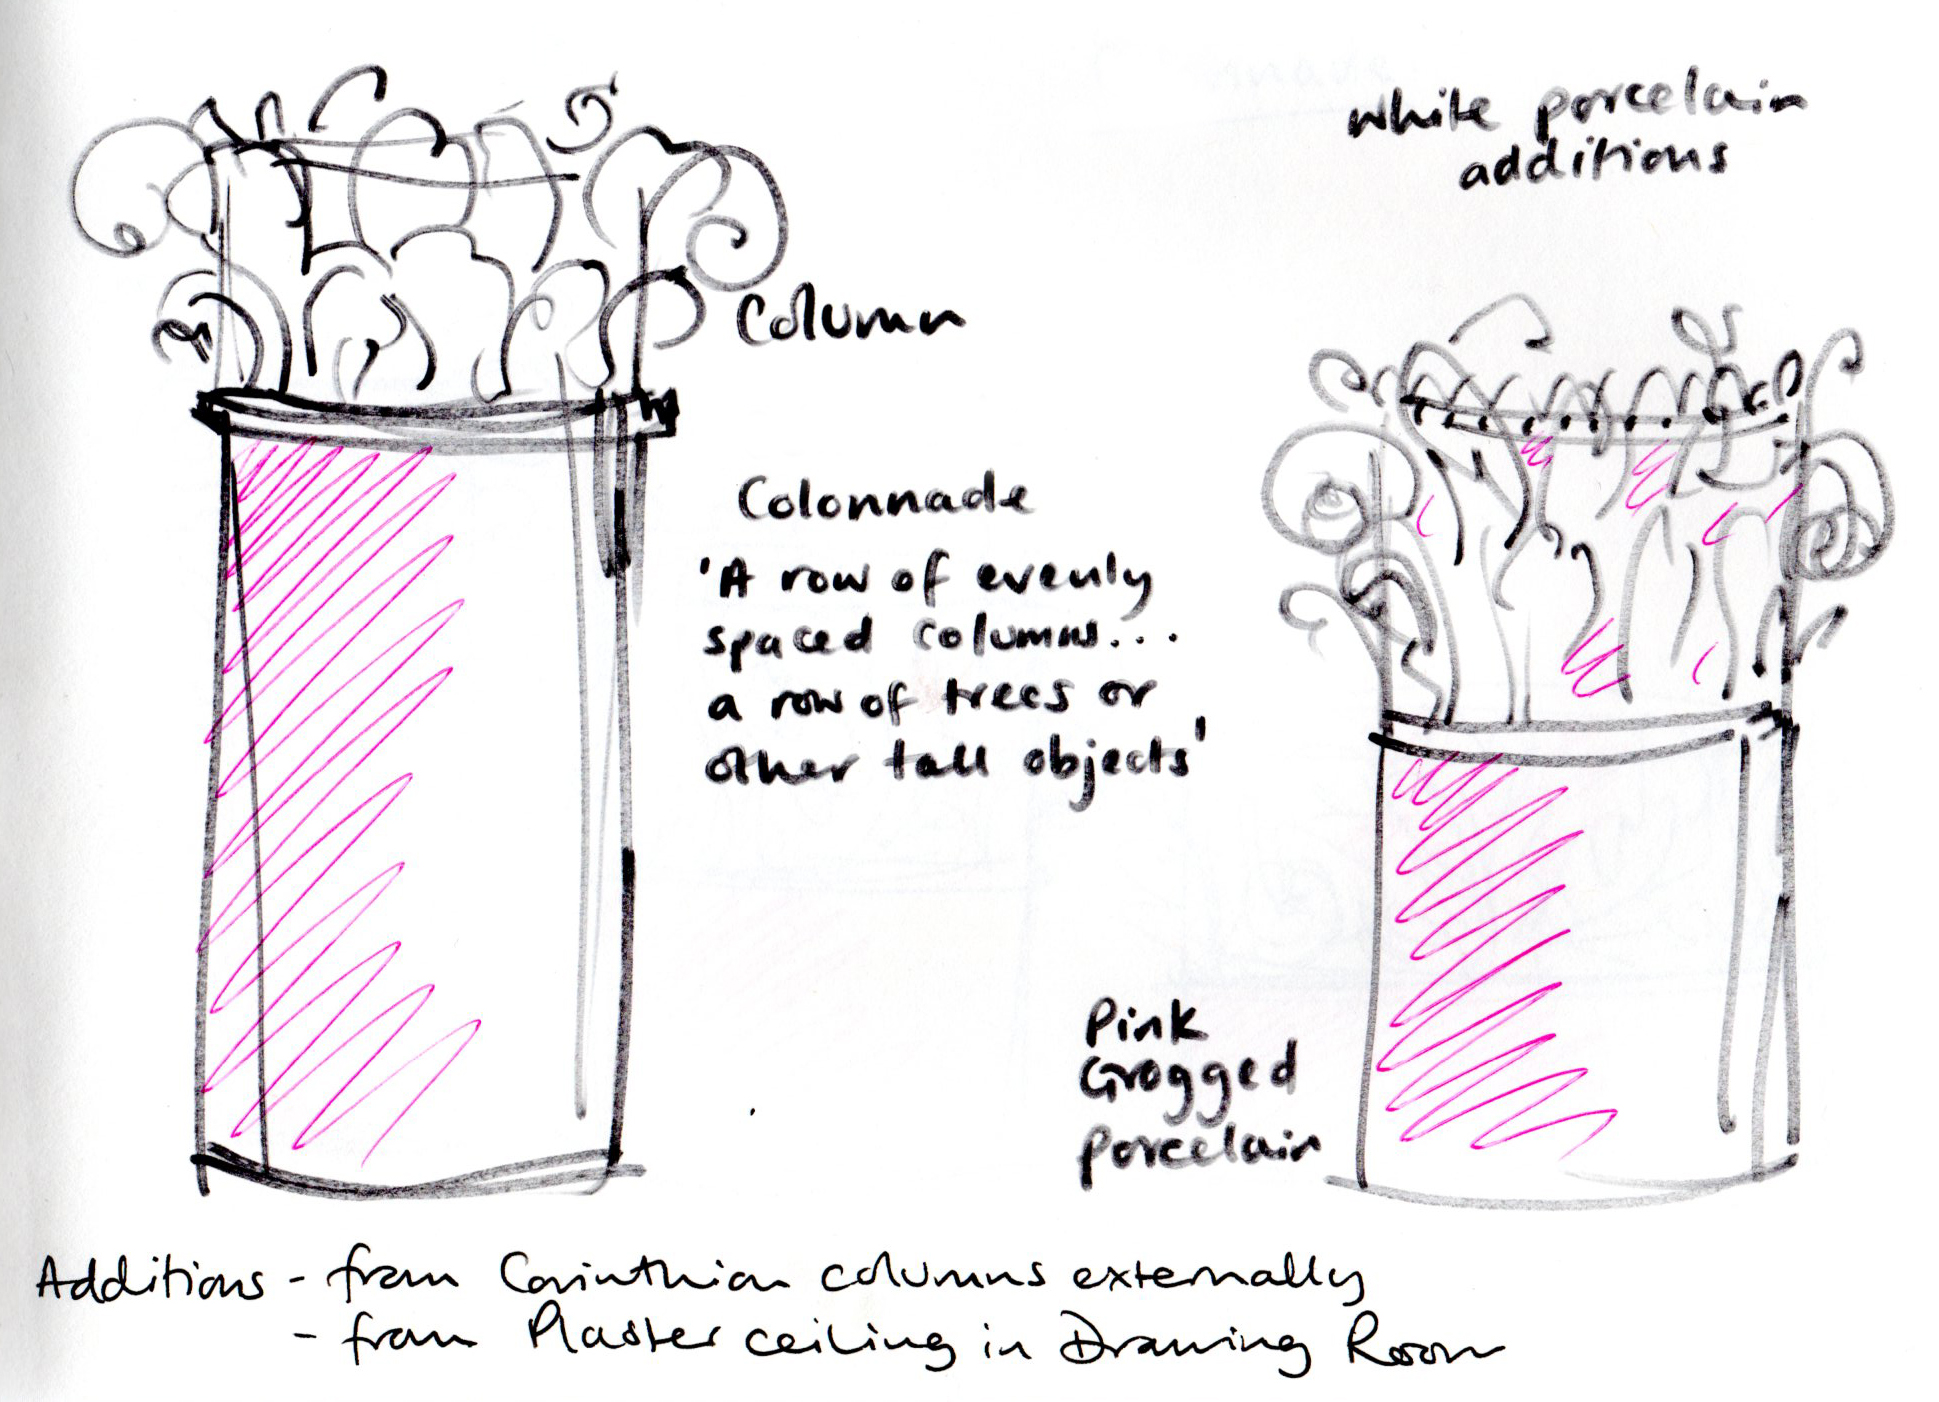 white porcelain
additions
Column
Colonnade
'A row of evenly
spaced columns...
a row of trees or
other tall objects'
Pink
Grogged
porcelain
Additions - from Corinthian columns externally
- from Plaster ceiling in Drawing Room